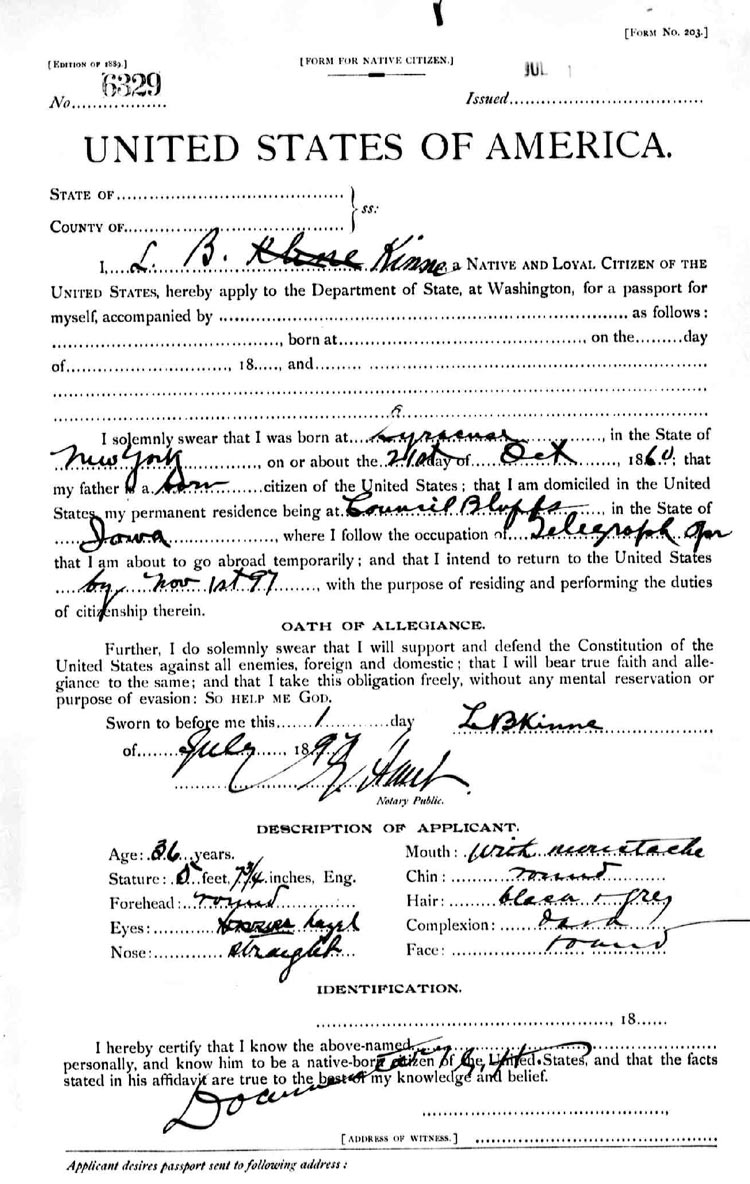 [FORM NO. 203.]
[EDITION OF 1889.]
[FORM FOR NATIVE CITIZEN.]
No. 6329
JUL 1
Issued
UNITED STATES OF AMERICA.
STATE OF
COUNTY OF
ss:
I, L. B. Kinne, a NATIVE AND LOYAL CITIZEN OF THE
UNITED STATES, hereby apply to the Department of State, at Washington, for a passport for
myself, accompanied by as follows:
, born at , on the day
of , 18 , and
I solemnly swear that I was born at Syracuse, in the State of
New York, on or about the 21st day of Oct, 1860; that
my father is a born citizen of the United States; that I am domiciled in the United
States, my permanent residence being at Council Bluffs, in the State of
Iowa, where I follow the occupation of Telegraph Opr
that I am about to go abroad temporarily; and that I intend to return to the United States
by Nov 1st 97, with the purpose of residing and performing the duties
of citizenship therein.
OATH OF ALLEGIANCE.
Further, I do solemnly swear that I will support and defend the Constitution of the
United States against all enemies, foreign and domestic; that I will bear true faith and alle-
giance to the same; and that I take this obligation freely, without any mental reservation or
purpose of evasion: SO HELP ME GOD.
Sworn to before me this 1 day
L B Kinne
of July, 1897
Notary Public.
DESCRIPTION OF APPLICANT.
Age: 36 years.
Mouth: with moustache
Stature: 5 feet, 7 3/4 inches, Eng.
Chin: round
Forehead: round
Hair: black & grey
Eyes: hazel
Complexion: dark
Nose: straight
Face: round
IDENTIFICATION.
, 18
I hereby certify that I know the above-named
personally, and know him to be a native-born citizen of the United States, and that the facts
stated in his affidavit are true to the best of my knowledge and belief.
[ADDRESS OF WITNESS.]
Applicant desires passport sent to following address: